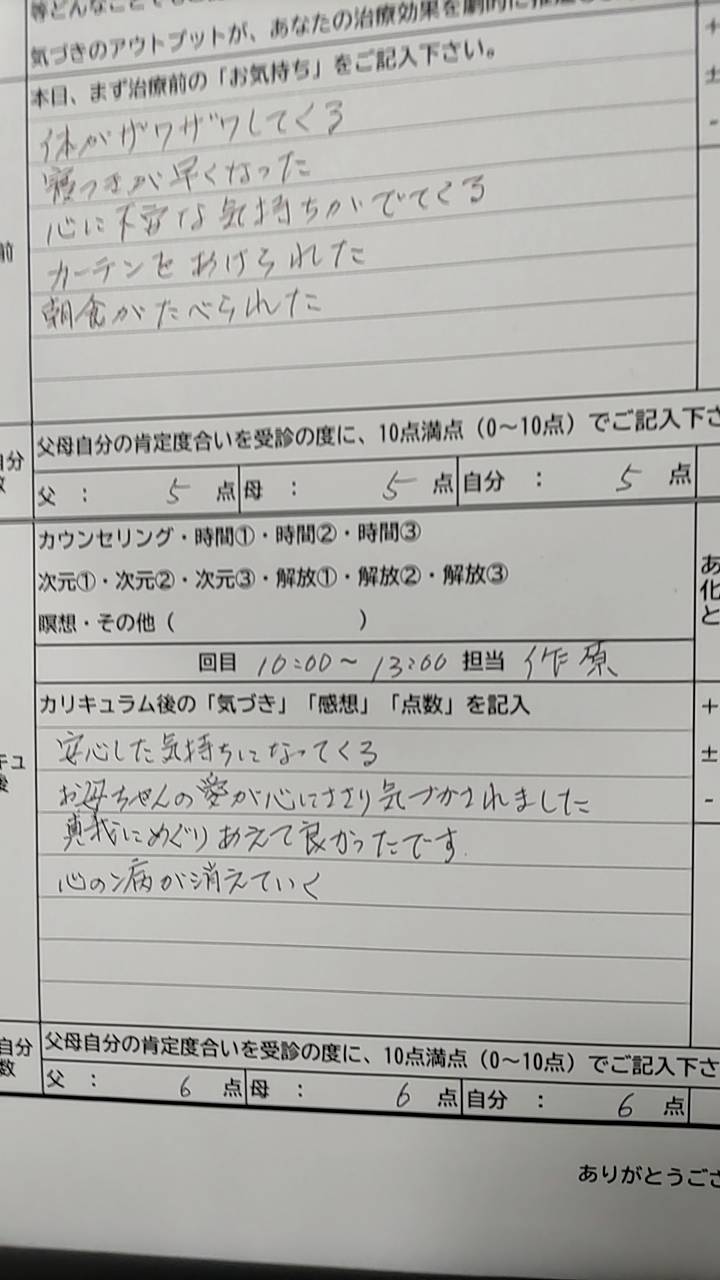 気づきのアウトプットが、あなたの治療効果を劇的に
本日、まず治療前の「お気持ち」をご記入下さい。
体がザワザワしてくる
寝つきが早くなった
心に不安な気持ちがでてくる
カーテンをあけられた
朝食がたべられた
前
父母自分の肯定度合いを受診の度に、10点満点（0～10点）でご記入下さ
父 ： 5 点 母 ： 5 点 自分 ： 5 点
カウンセリング・時間①・時間②・時間③
次元①・次元②・次元③・解放①・解放②・解放③
瞑想・その他（ ）
回目 10:00～13:00 担当 作原
カリキュラム後の「気づき」「感想」「点数」を記入
安心した気持ちになってくる
お母ちゃんの愛が心にささり気づかされました
真我にめぐりあえて良かったです.
心の病が消えていく
父母自分の肯定度合いを受診の度に、10点満点（0～10点）でご記入下さ
父 ： 6 点 母 ： 6 点 自分 ： 6 点
ありがとうござ